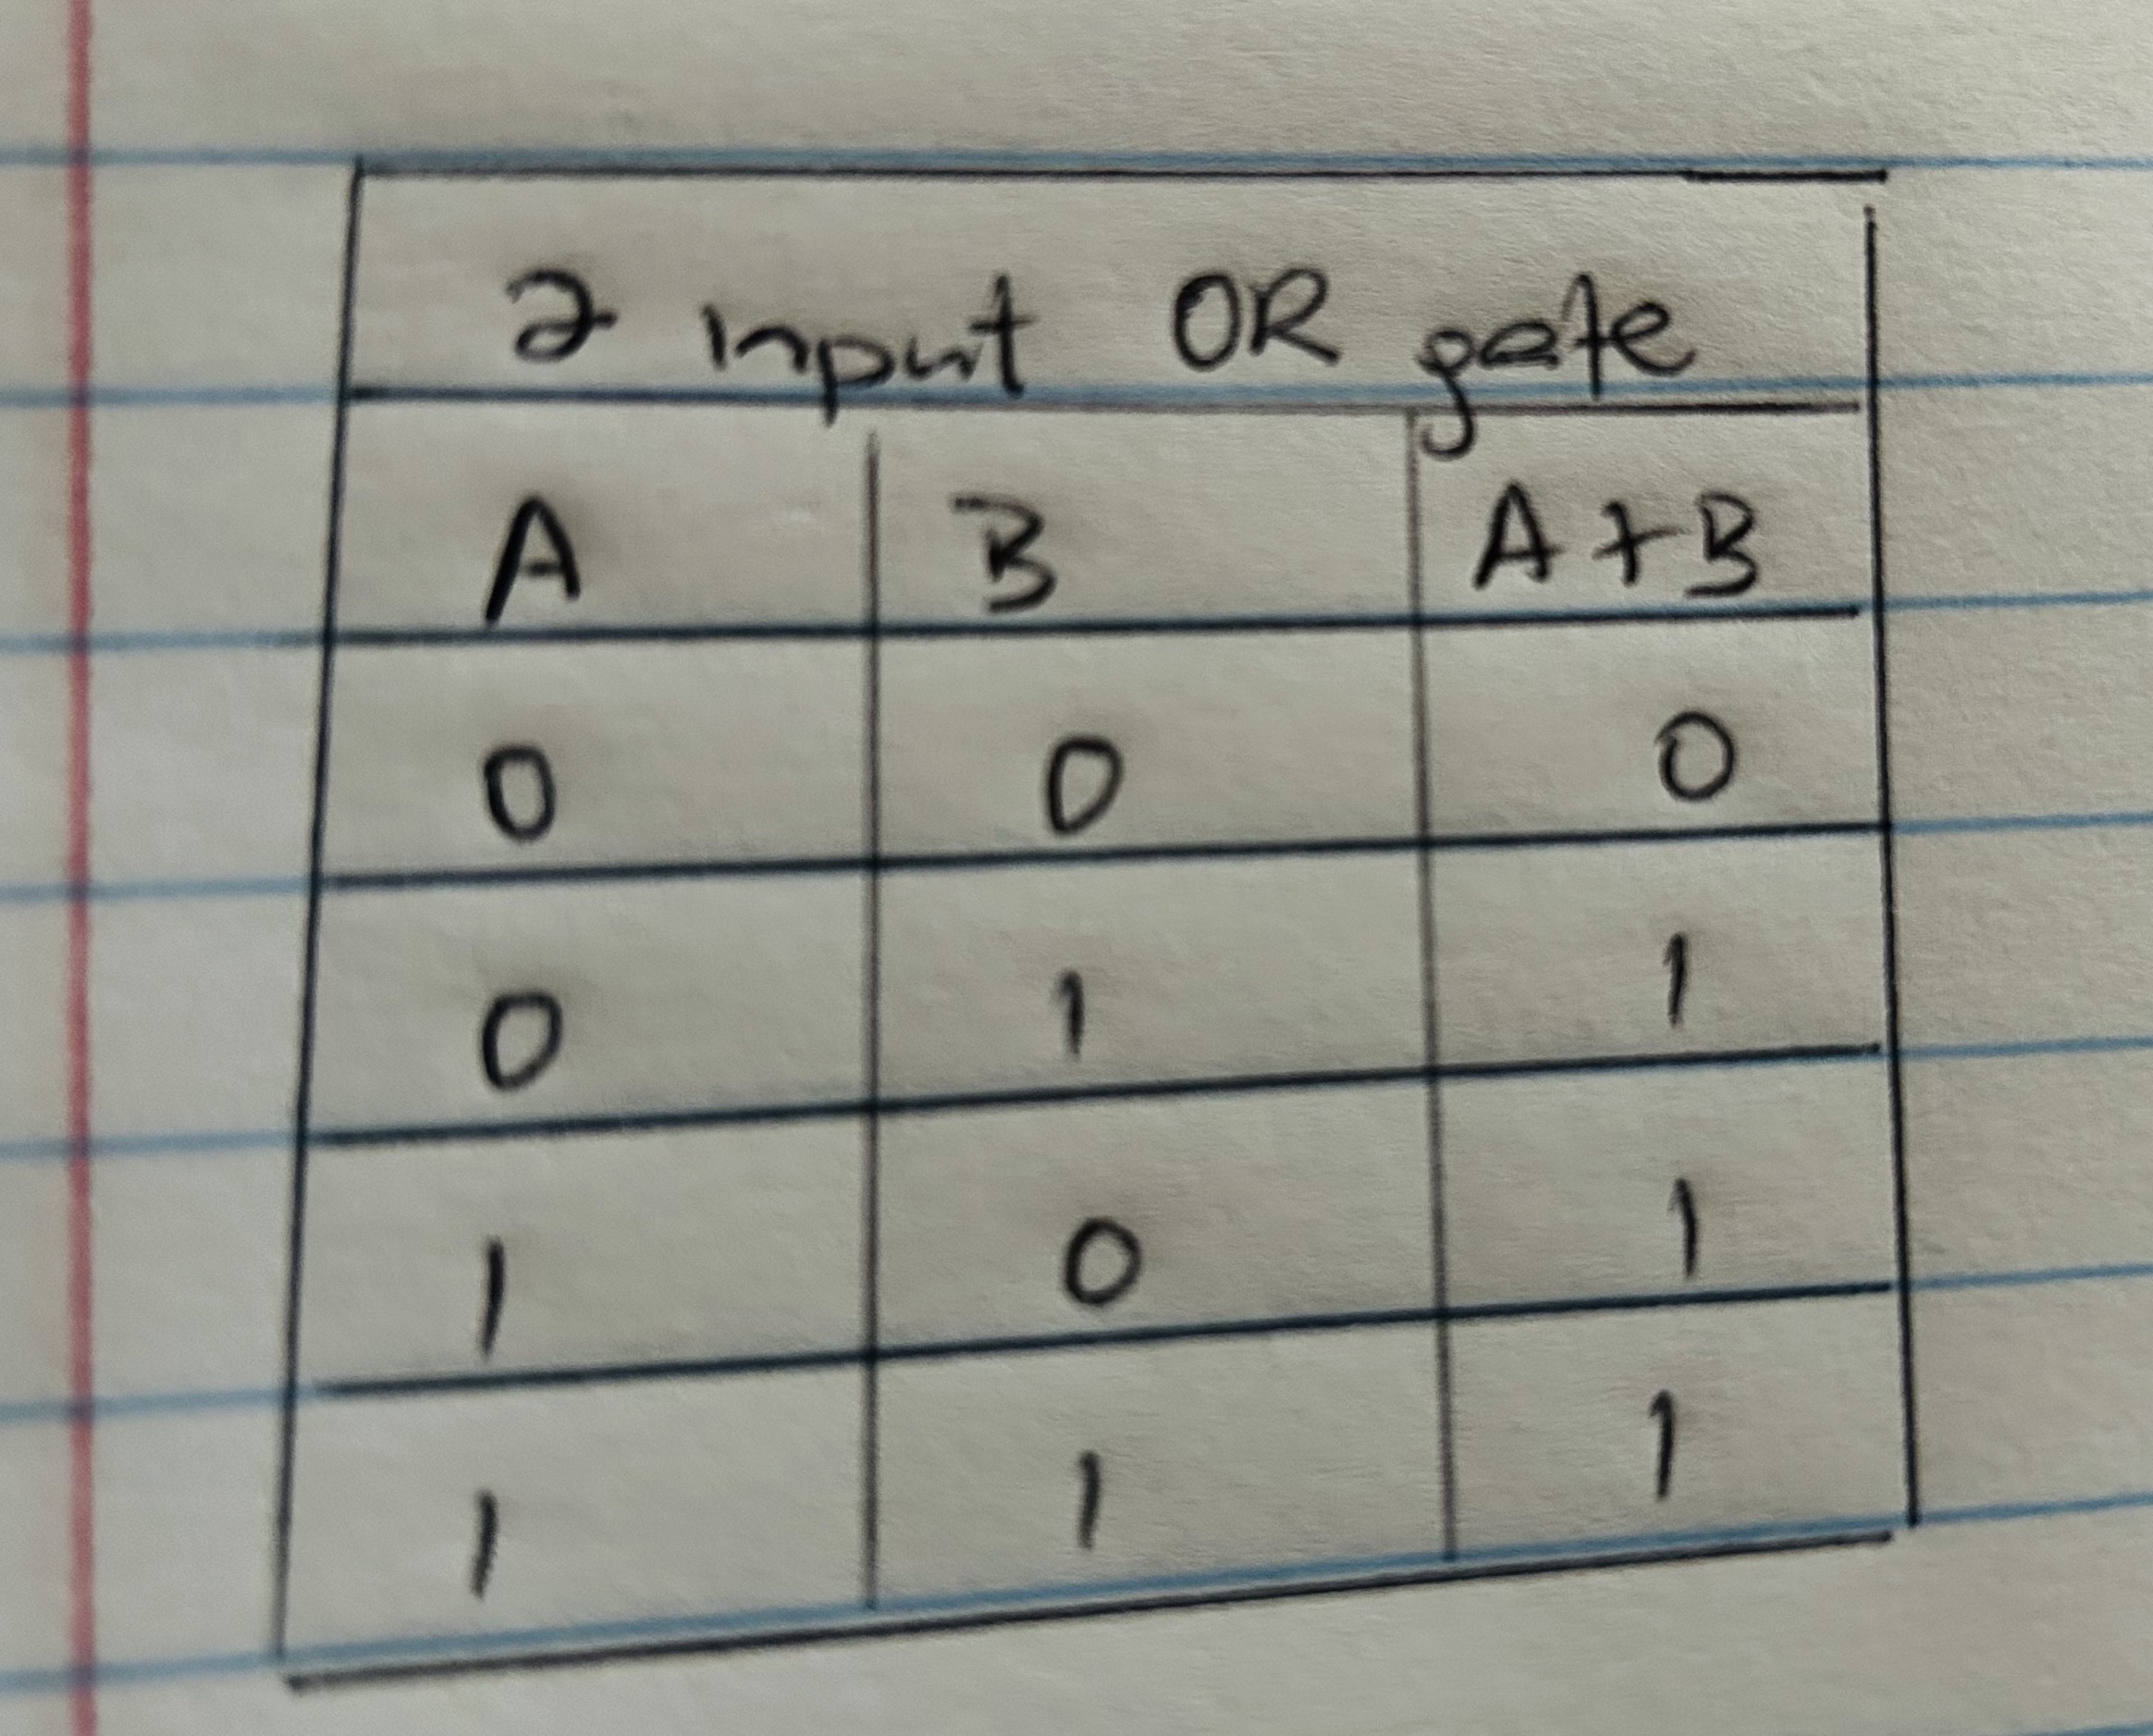 2 input OR gate
A B A+B
0 0 0
0 1 1
1 0 1
1 1 1